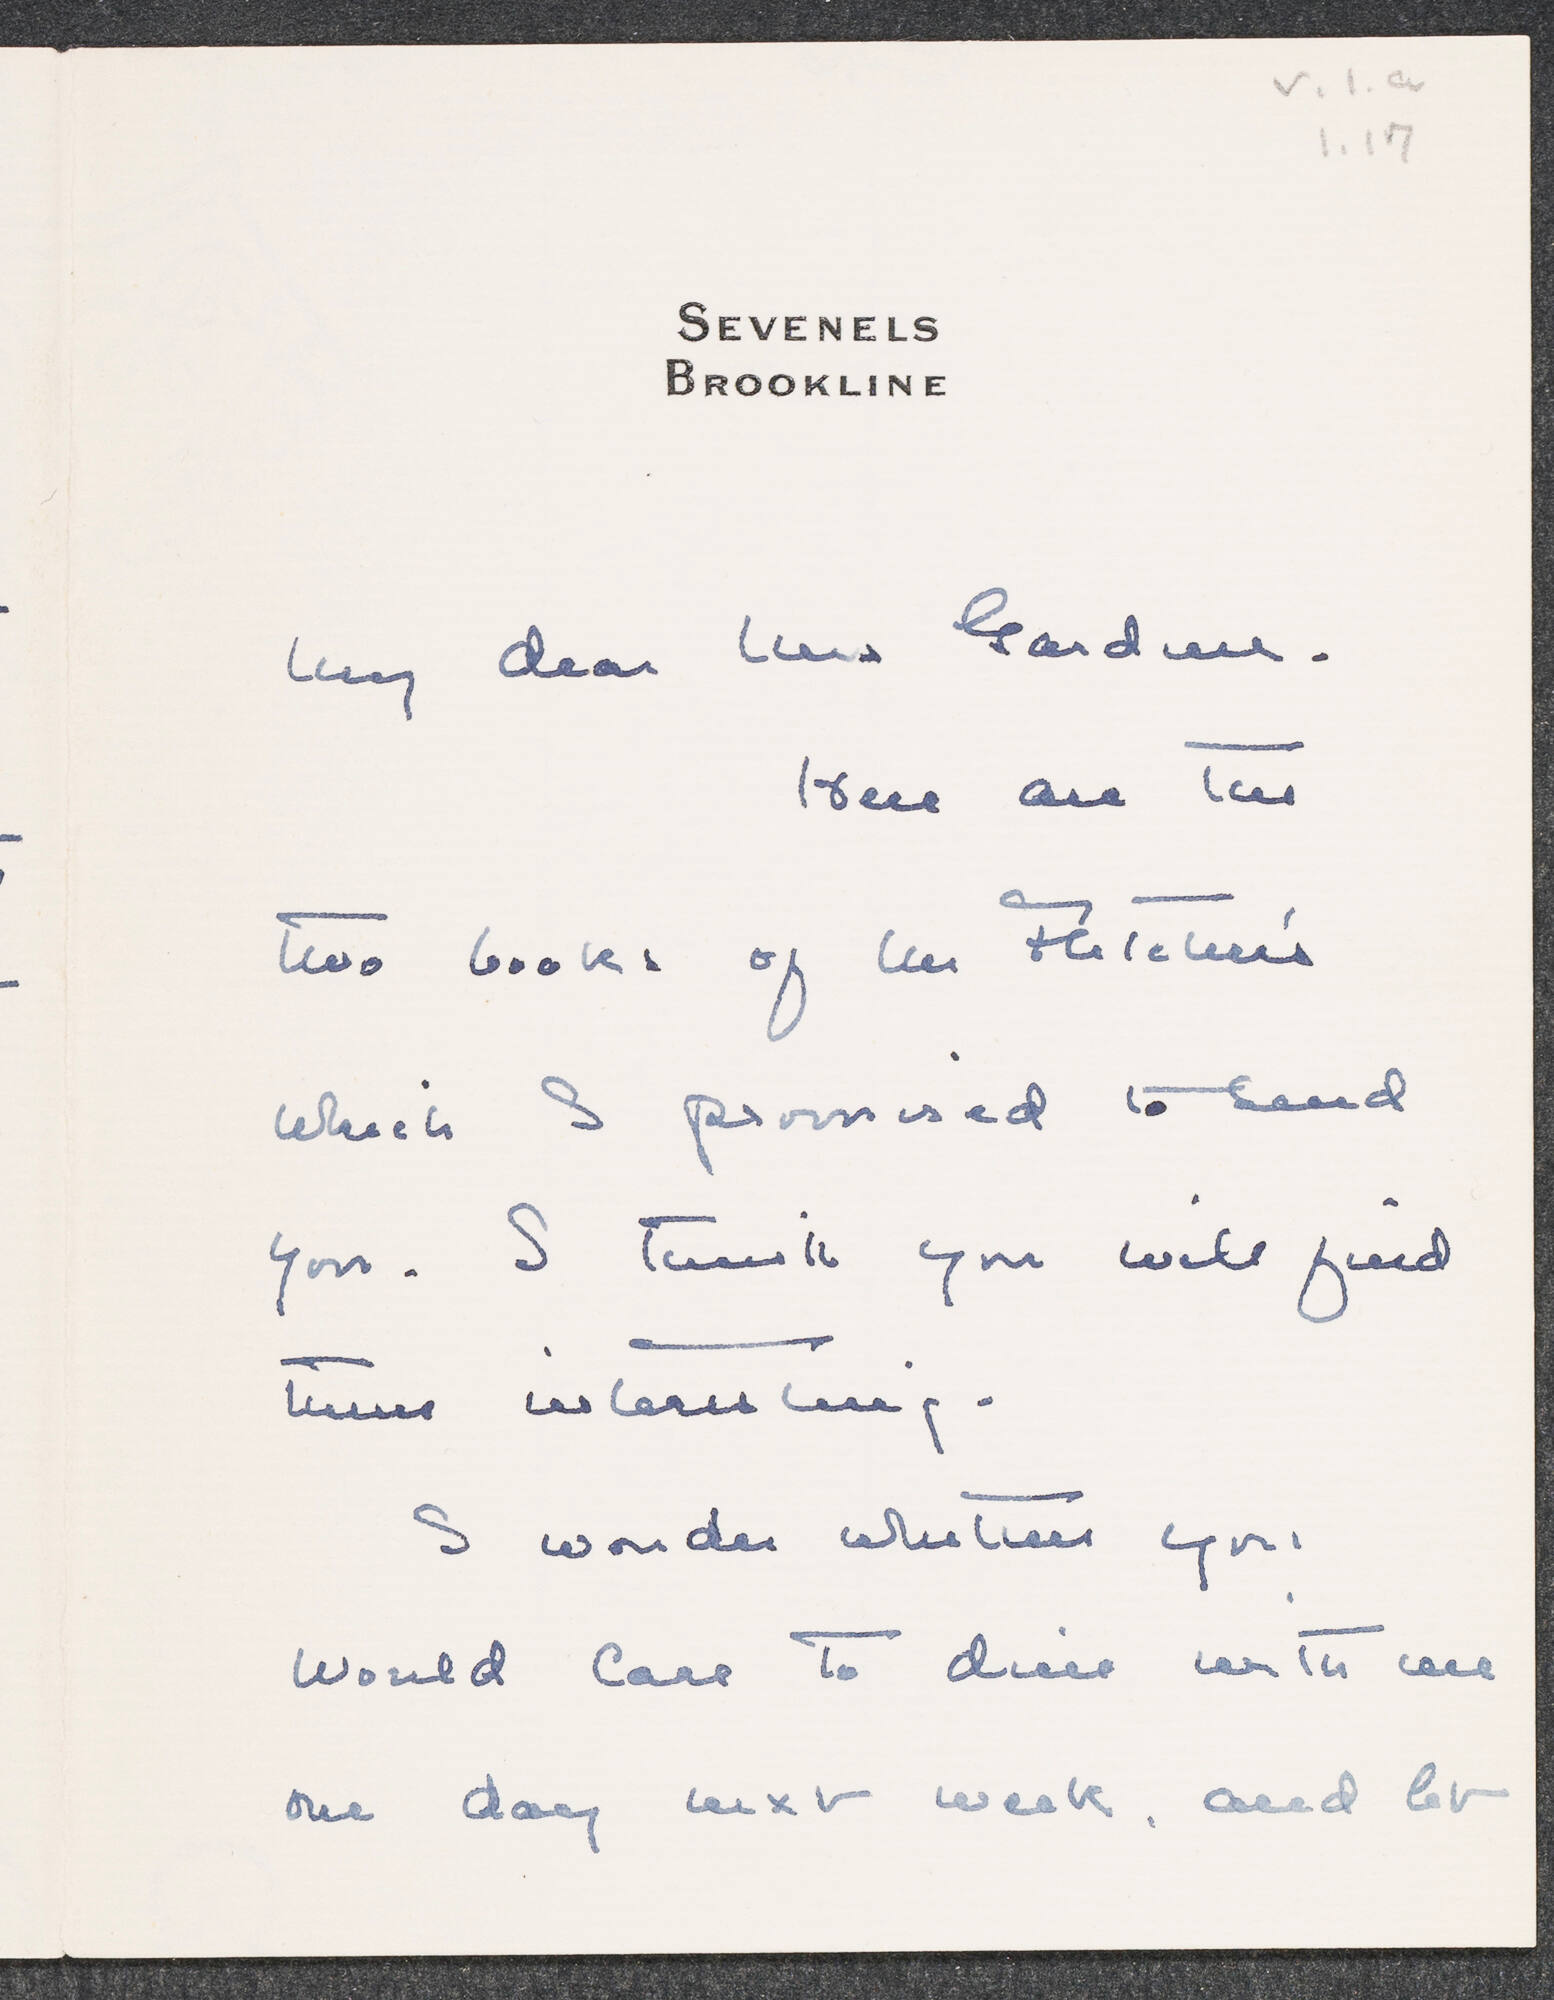 v.1.a
1.17
SEVENELS
BROOKLINE
My dear Mrs Gardner.
Here are the
two books of Mr Fletcher's
which I promised to send
you. I think you will find
them interesting.
I wonder whether you
would care to dine with me
one day next week, and let